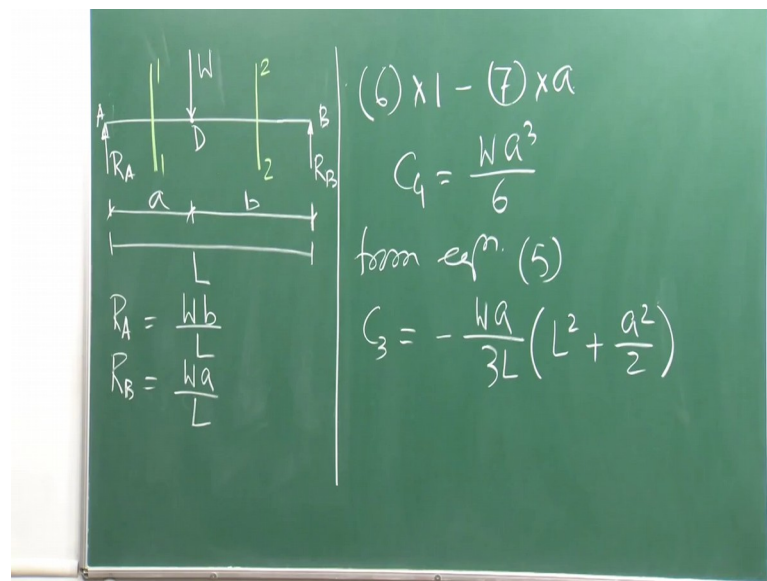 1 W 2
A D B
R_A 1 2 R_B
a b
L
R_A = Wb/L
R_B = Wa/L
(6) x 1 - (7) x a
C_4 = Wa³/6
from eqⁿ. (5)
C_3 = - Wa/3L (L² + a²/2)